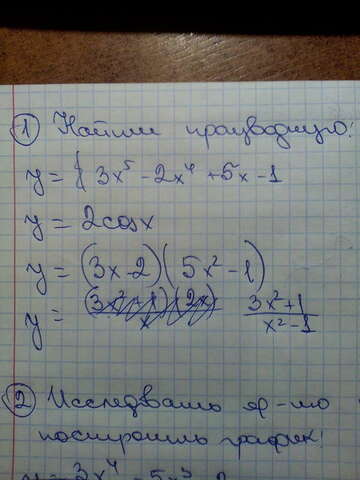 1 Найти производную:
y = 3x⁵ - 2x⁴ + 5x - 1
y = 2cosx
y = (3x-2)(5x²-1)
y = (3x²+1)/(x²-1)
2 Исследовать ф-ию
построить график: